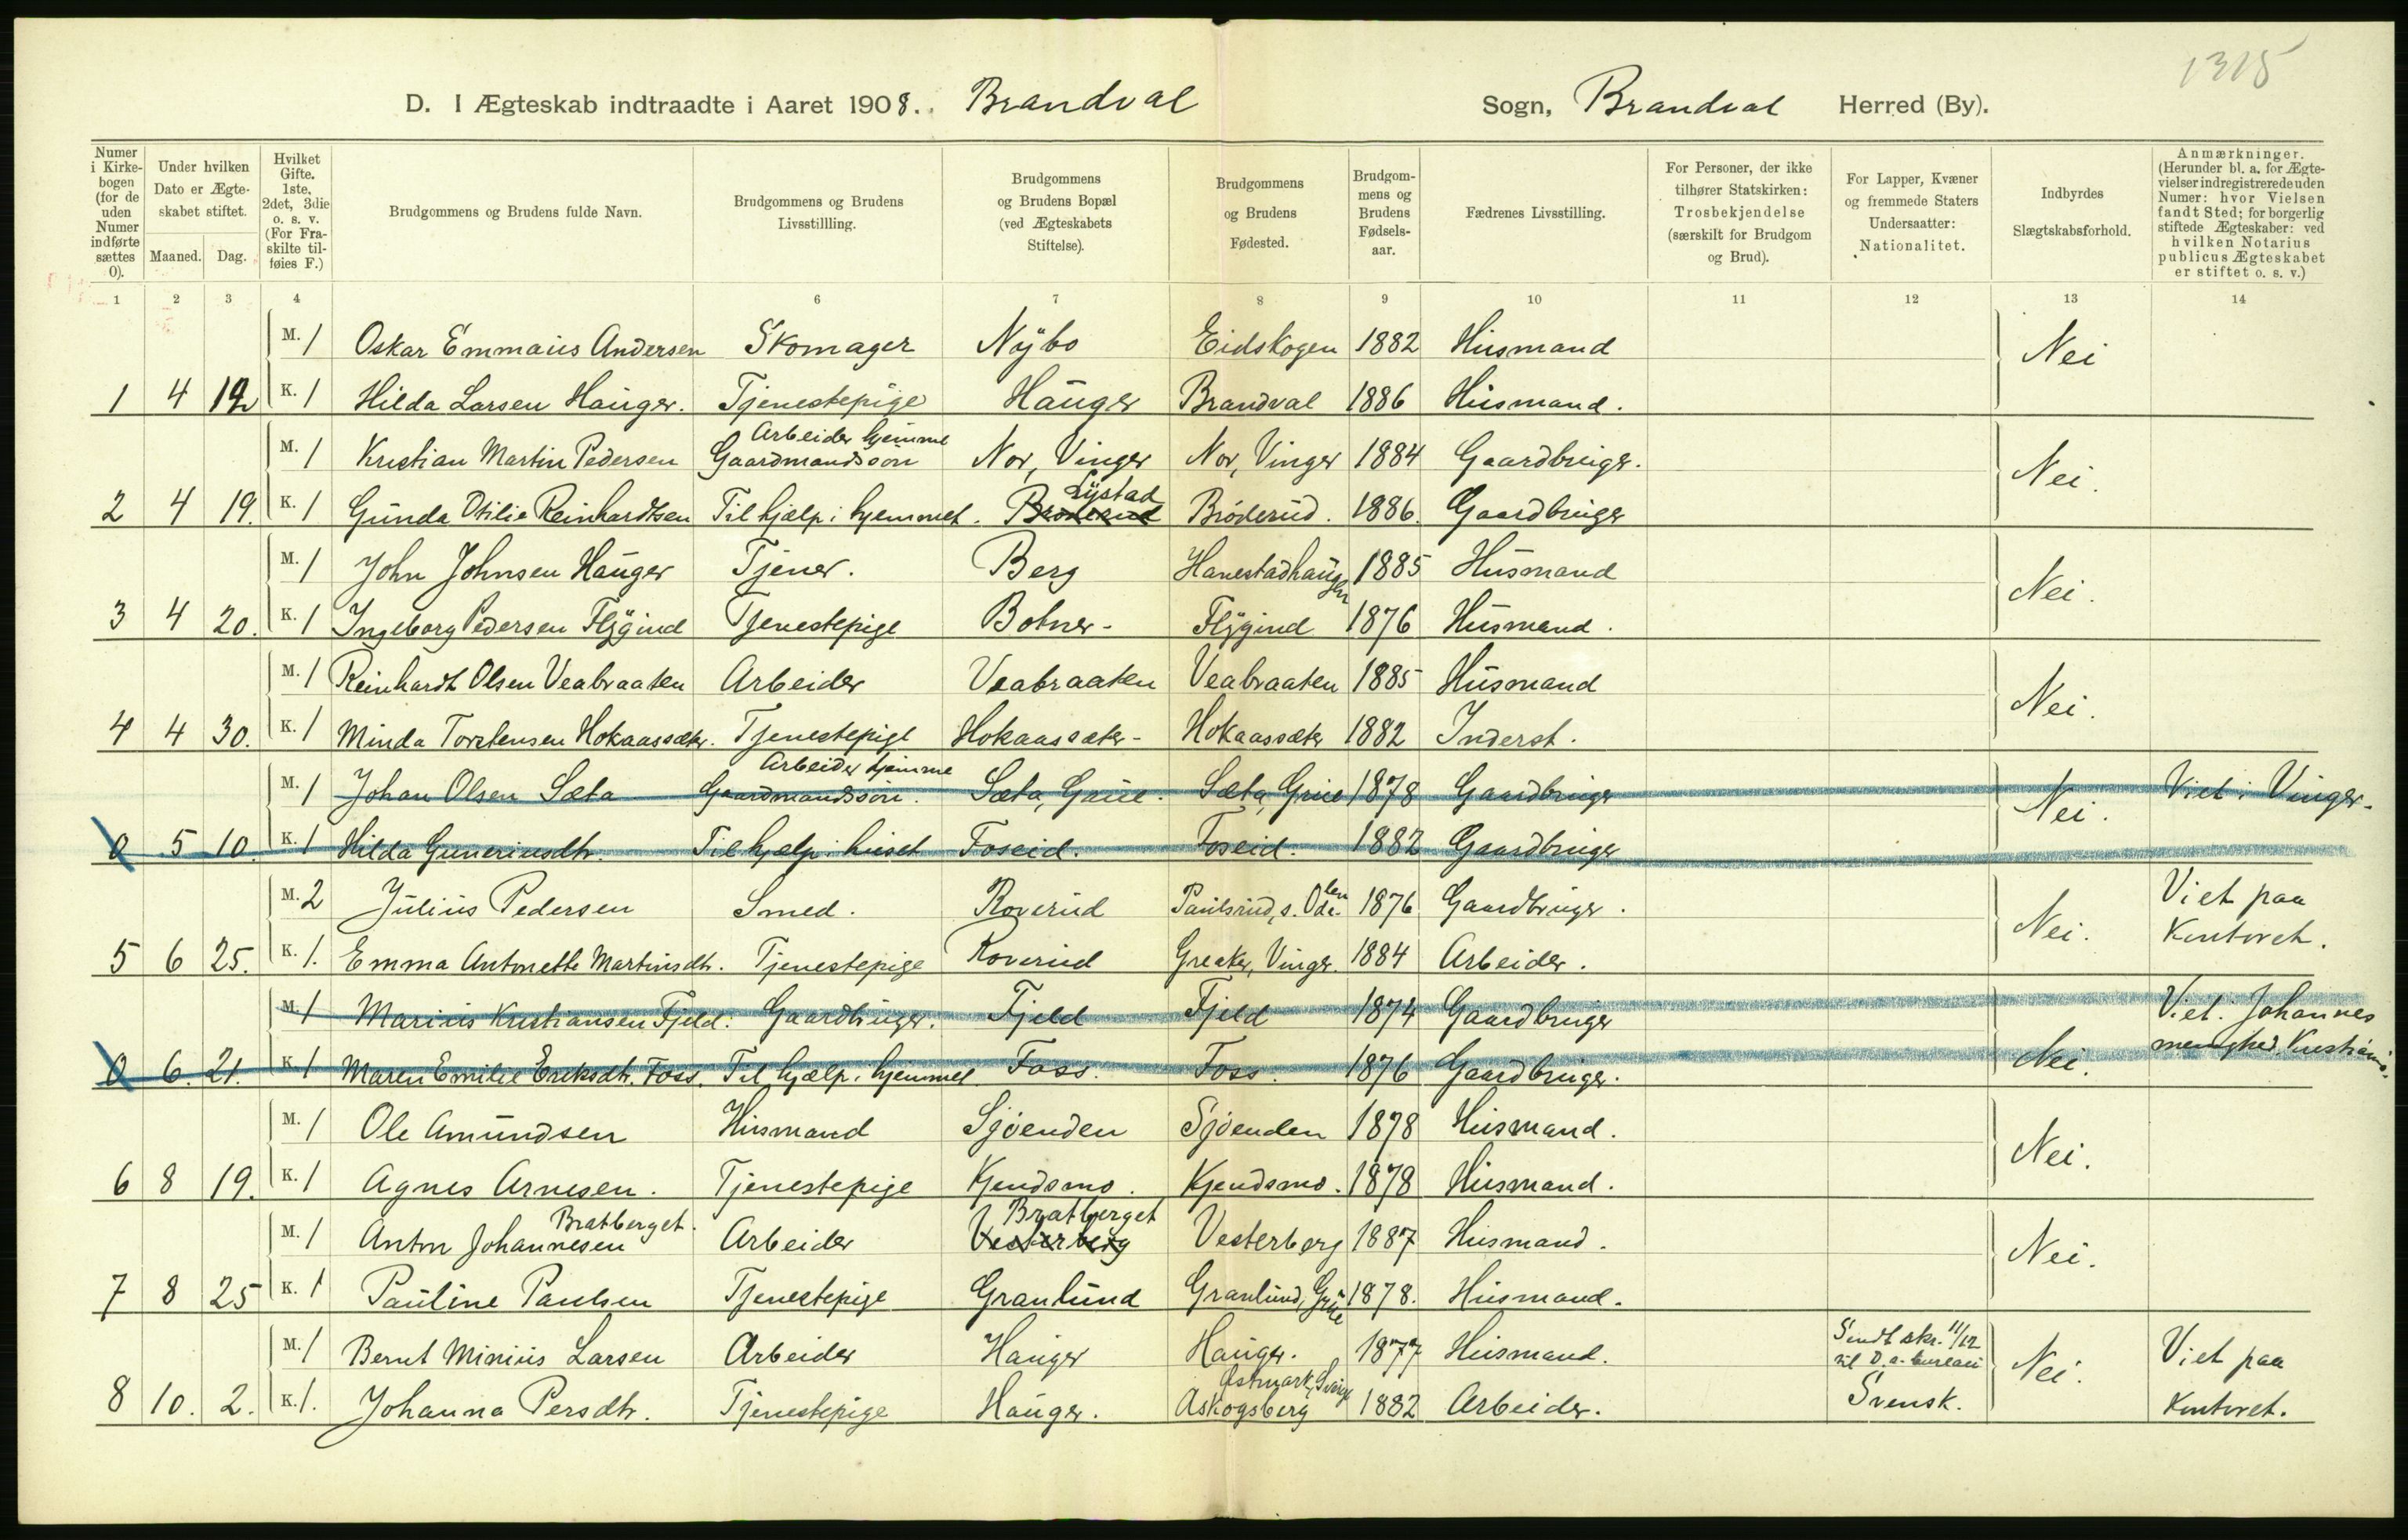 1315
D. I Ægteskab indtraadte i Aaret 1908. Brandval Sogn, Brandval Herred (By).
Numer i Kirkebogen (for de uden Numer indførte sættes 0).
Under hvilken Dato er Ægteskabet stiftet.
Maaned. Dag.
Hvilket Gifte. 1ste, 2det, 3die o. s. v. (For Fraskilte tilføies F.)
Brudgommens og Brudens fulde Navn.
Brudgommens og Brudens Livsstillling.
Brudgommens og Brudens Bopæl (ved Ægteskabets Stiftelse).
Brudgommens og Brudens Fødested.
Brudgommens og Brudens Fødselsaar.
Fædrenes Livsstilling.
For Personer, der ikke tilhører Statskirken: Trosbekjendelse (særskilt for Brudgom og Brud).
For Lapper, Kvæner og fremmede Staters Undersaatter: Nationalitet.
Indbyrdes Slægtskabsforhold.
Anmærkninger. (Herunder bl. a. for Ægtevielser indregistrerede uden Numer: hvor Vielsen fandt Sted; for borgerlig stiftede Ægteskaber: ved hvilken Notarius publicus Ægteskabet er stiftet o. s. v.)
1 2 3 4 6 7 8 9 10 11 12 13 14
M. 1 Oskar Emmaus Andersen Skomager Nybo Eidskogen 1882 Husmand Nei
1 4 12 K. 1 Hilda Larsen Hauger. Tjenestepige Hauger Brandval 1886 Husmand.
Arbeider hjemme
M. 1 Kristian Martin Pedersen Gaardmandssøn Nor, Vinger Nor, Vinger 1884 Gaardbruger. Nei.
Lystad
2 4 19. K. 1 Gunda Otilie Reinhardtsen Til hjælp i hjemmet. Brøderud Brøderud. 1886. Gaardbruger
M. 1 John Johnsen Hauger Tjener. Berg Hanestadhaugen 1885 Husmand Nei.
3 4 20. K. 1 Ingeborg Pedersen Flygind Tjenestepige Botner- Flygind 1876 Husmand.
M. 1 Reinhardt Olsen Veabraaten Arbeider Veabraaten Veabraaten 1885 Husmand Nei.
4 4 30. K. 1 Minda Torstensen Hokaassæter. Tjenestepige Hokaassæter- Hokaassæter 1882 Inderst.
Arbeider hjemme
M. 1 Johan Olsen Sæta Gaardmandssøn. Sæta, Grue. Sæta, Grue 1878 Gaardbruger Nei. Viet i Vinger-
0 5 10. K. 1 Hilda Gunerinsdtr. Til hjælp i huset Foseid. Foseid. 1882 Gaardbruger
M. 2 Julius Pedersen Smed. Roverud Paulsrud, s. Odalen 1876 Gaardbruger. Nei. Viet paa
5 6 25. K. 1. Emma Antonette Martinsdtr. Tjenestepige Roverud Greaker, Vinger. 1884 Arbeider. Kontoret.
M. 1 Marius Kristiansen Fjeld. Gaardbruger. Fjeld Fjeld 1874 Gaardbruger Nei. Viet i Johannes
0 6. 21. K. 1 Maren Emilie Eriksdtr. Foss. Til hjælp i hjemmet Foss. Foss. 1876 Gaardbruger. menighed. Kristiania.
M. 1 Ole Amundsen Husmand Sjøenden Sjøenden 1878 Husmand. Nei.
6 8 19. K. 1 Agnes Arnesen. Tjenestepige Kjendsmo. Kjendsmo. 1878 Husmand.
Bratberget. Bratberget
M. 1 Anton Johannesen Arbeider Vesterberg Vesterberg 1887 Husmand. Nei.
7 8 25 K. 1 Pauline Paulsen Tjenestepige Granlund Granlund, Grue 1878. Husmand.
M. 1 Bernt Minius Larsen Arbeider Hauger Hauger. 1877 Husmand. Sendt skr. 11/12 til D. a. bureau Nei. Viet paa
Østmark, Sverige
8 10. 2. K. 1. Johanna Persdtr. Tjenestepige Hauger. Askogsberg 1882 Arbeider. Svensk. Kontoret.